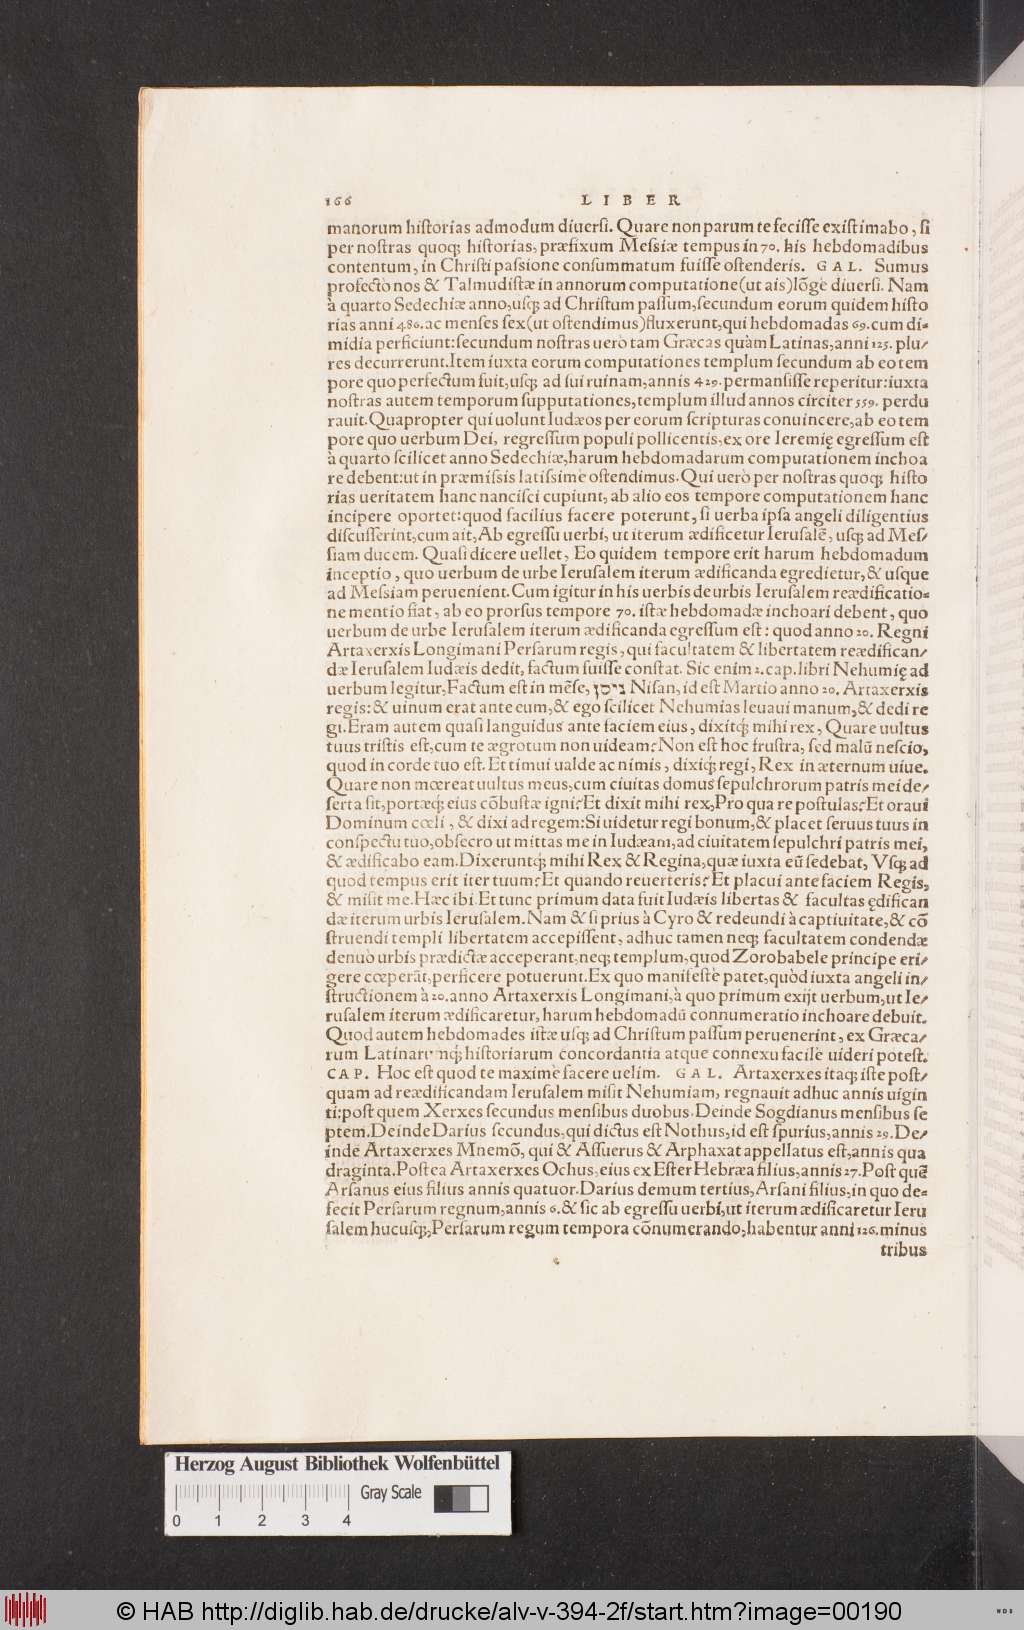 166 LIBER
manorum historias admodum diuersi. Quare non parum te fecisse existimabo, si
per nostras quoq; historias, præfixum Messiæ tempus in 70. his hebdomadibus
contentum, in Christi passione consummatum fuisse ostenderis. GAL. Sumus
profecto nos & Talmudistæ in annorum computatione(ut ais)lõgè diuersi. Nam
à quarto Sedechiæ anno, usq; ad Christum passum, secundum eorum quidem histo
rias anni 486. ac menses sex(ut ostendimus)fluxerunt, qui hebdomadas 69. cum di=
midia perficiunt: secundum nostras uero tam Græcas quàm Latinas, anni 125. plu/
res decurrerunt. Item iuxta eorum computationes templum secundum ab eo tem
pore quo perfectum fuit, usq; ad sui ruinam, annis 429. permansisse reperitur: iuxta
nostras autem temporum supputationes, templum illud annos circiter 559. perdu
rauit. Quapropter qui uolunt Iudæos per eorum scripturas conuincere, ab eo tem
pore quo uerbum Dei, regressum populi pollicentis, ex ore Ieremię egressum est
à quarto scilicet anno Sedechiæ, harum hebdomadarum computationem inchoa
re debent: ut in præmissis latissime ostendimus. Qui uero per nostras quoq; histo
rias ueritatem hanc nancisci cupiunt, ab alio eos tempore computationem hanc
incipere oportet: quod facilius facere poterunt, si uerba ipsa angeli diligentius
discusserint, cum ait, Ab egressu uerbi, ut iterum ædificetur Ierusalẽ, usq; ad Mes/
siam ducem. Quasi dicere uellet, Eo quidem tempore erit harum hebdomadum
inceptio, quo uerbum de urbe Ierusalem iterum ædificanda egredietur, & usque
ad Messiam peruenient. Cum igitur in his uerbis de urbis Ierusalem reædificatio=
ne mentio fiat, ab eo prorsus tempore 70. istæ hebdomadæ inchoari debent, quo
uerbum de urbe Ierusalem iterum ædificanda egressum est: quod anno 20. Regni
Artaxerxis Longimani Persarum regis, qui facultatem & libertatem reædifican/
dæ Ierusalem Iudæis dedit, factum fuisse constat. Sic enim 2. cap. libri Nehumię ad
uerbum legitur, Factum est in mẽse, ניסן Nisan, id est Martio anno 20. Artaxerxis
regis: & uinum erat ante eum, & ego scilicet Nehumias leuaui manum, & dedi re
gi. Eram autem quasi languidus ante faciem eius, dixitq; mihi rex, Quare uultus
tuus tristis est, cum te ægrotum non uideam? Non est hoc frustra, sed malũ nescio,
quod in corde tuo est. Et timui ualde ac nimis, dixiq; regi, Rex in æternum uiue.
Quare non mœreat uultus meus, cum ciuitas domus sepulchrorum patris mei de/
serta sit, portæq; eius cõbustæ igni? Et dixit mihi rex, Pro qua re postulas? Et oraui
Dominum cœli, & dixi ad regem: Si uidetur regi bonum, & placet seruus tuus in
conspectu tuo, obsecro ut mittas me in Iudæam, ad ciuitatem sepulchri patris mei,
& ædificabo eam. Dixeruntq; mihi Rex & Regina, quæ iuxta eũ sedebat, Vsq; ad
quod tempus erit iter tuum? Et quando reuerteris? Et placui ante faciem Regis,
& misit me. Hæc ibi. Et tunc primum data fuit Iudæis libertas & facultas ędifican
dæ iterum urbis Ierusalem. Nam & si prius à Cyro & redeundi à captiuitate, & cõ
struendi templi libertatem accepissent, adhuc tamen neq; facultatem condendæ
denuò urbis prædictæ acceperant, neq; templum, quod Zorobabele principe eri/
gere cœperãt, perficere potuerunt. Ex quo manifestè patet, quòd iuxta angeli in/
structionem à 20. anno Artaxerxis Longimani, à quo primum exijt uerbum, ut Ie/
rusalem iterum ædificaretur, harum hebdomadũ connumeratio inchoare debuit.
Quod autem hebdomades istæ usq; ad Christum passum peruenerint, ex Græca/
rum Latinarumq; historiarum concordantia atque connexu facilè uideri potest.
CAP. Hoc est quod te maximè facere uelim. GAL. Artaxerxes itaq; iste post/
quam ad reædificandam Ierusalem misit Nehumiam, regnauit adhuc annis uigin
ti: post quem Xerxes secundus mensibus duobus. Deinde Sogdianus mensibus se
ptem. Deinde Darius secundus, qui dictus est Nothus, id est spurius, annis 29. De/
inde Artaxerxes Mnemõ, qui & Assuerus & Arphaxat appellatus est, annis qua
draginta. Postea Artaxerxes Ochus, eius ex Ester Hebræa filius, annis 27. Post quẽ
Arsanus eius filius annis quatuor. Darius demum tertius, Arsani filius, in quo de=
fecit Persarum regnum, annis 6. & sic ab egressu uerbi, ut iterum ædificaretur Ieru
salem hucusq;, Persarum regum tempora cõnumerando, habentur anni 126. minus
tribus
Herzog August Bibliothek Wolfenbüttel
Gray Scale
0 1 2 3 4
© HAB http://diglib.hab.de/drucke/alv-v-394-2f/start.htm?image=00190